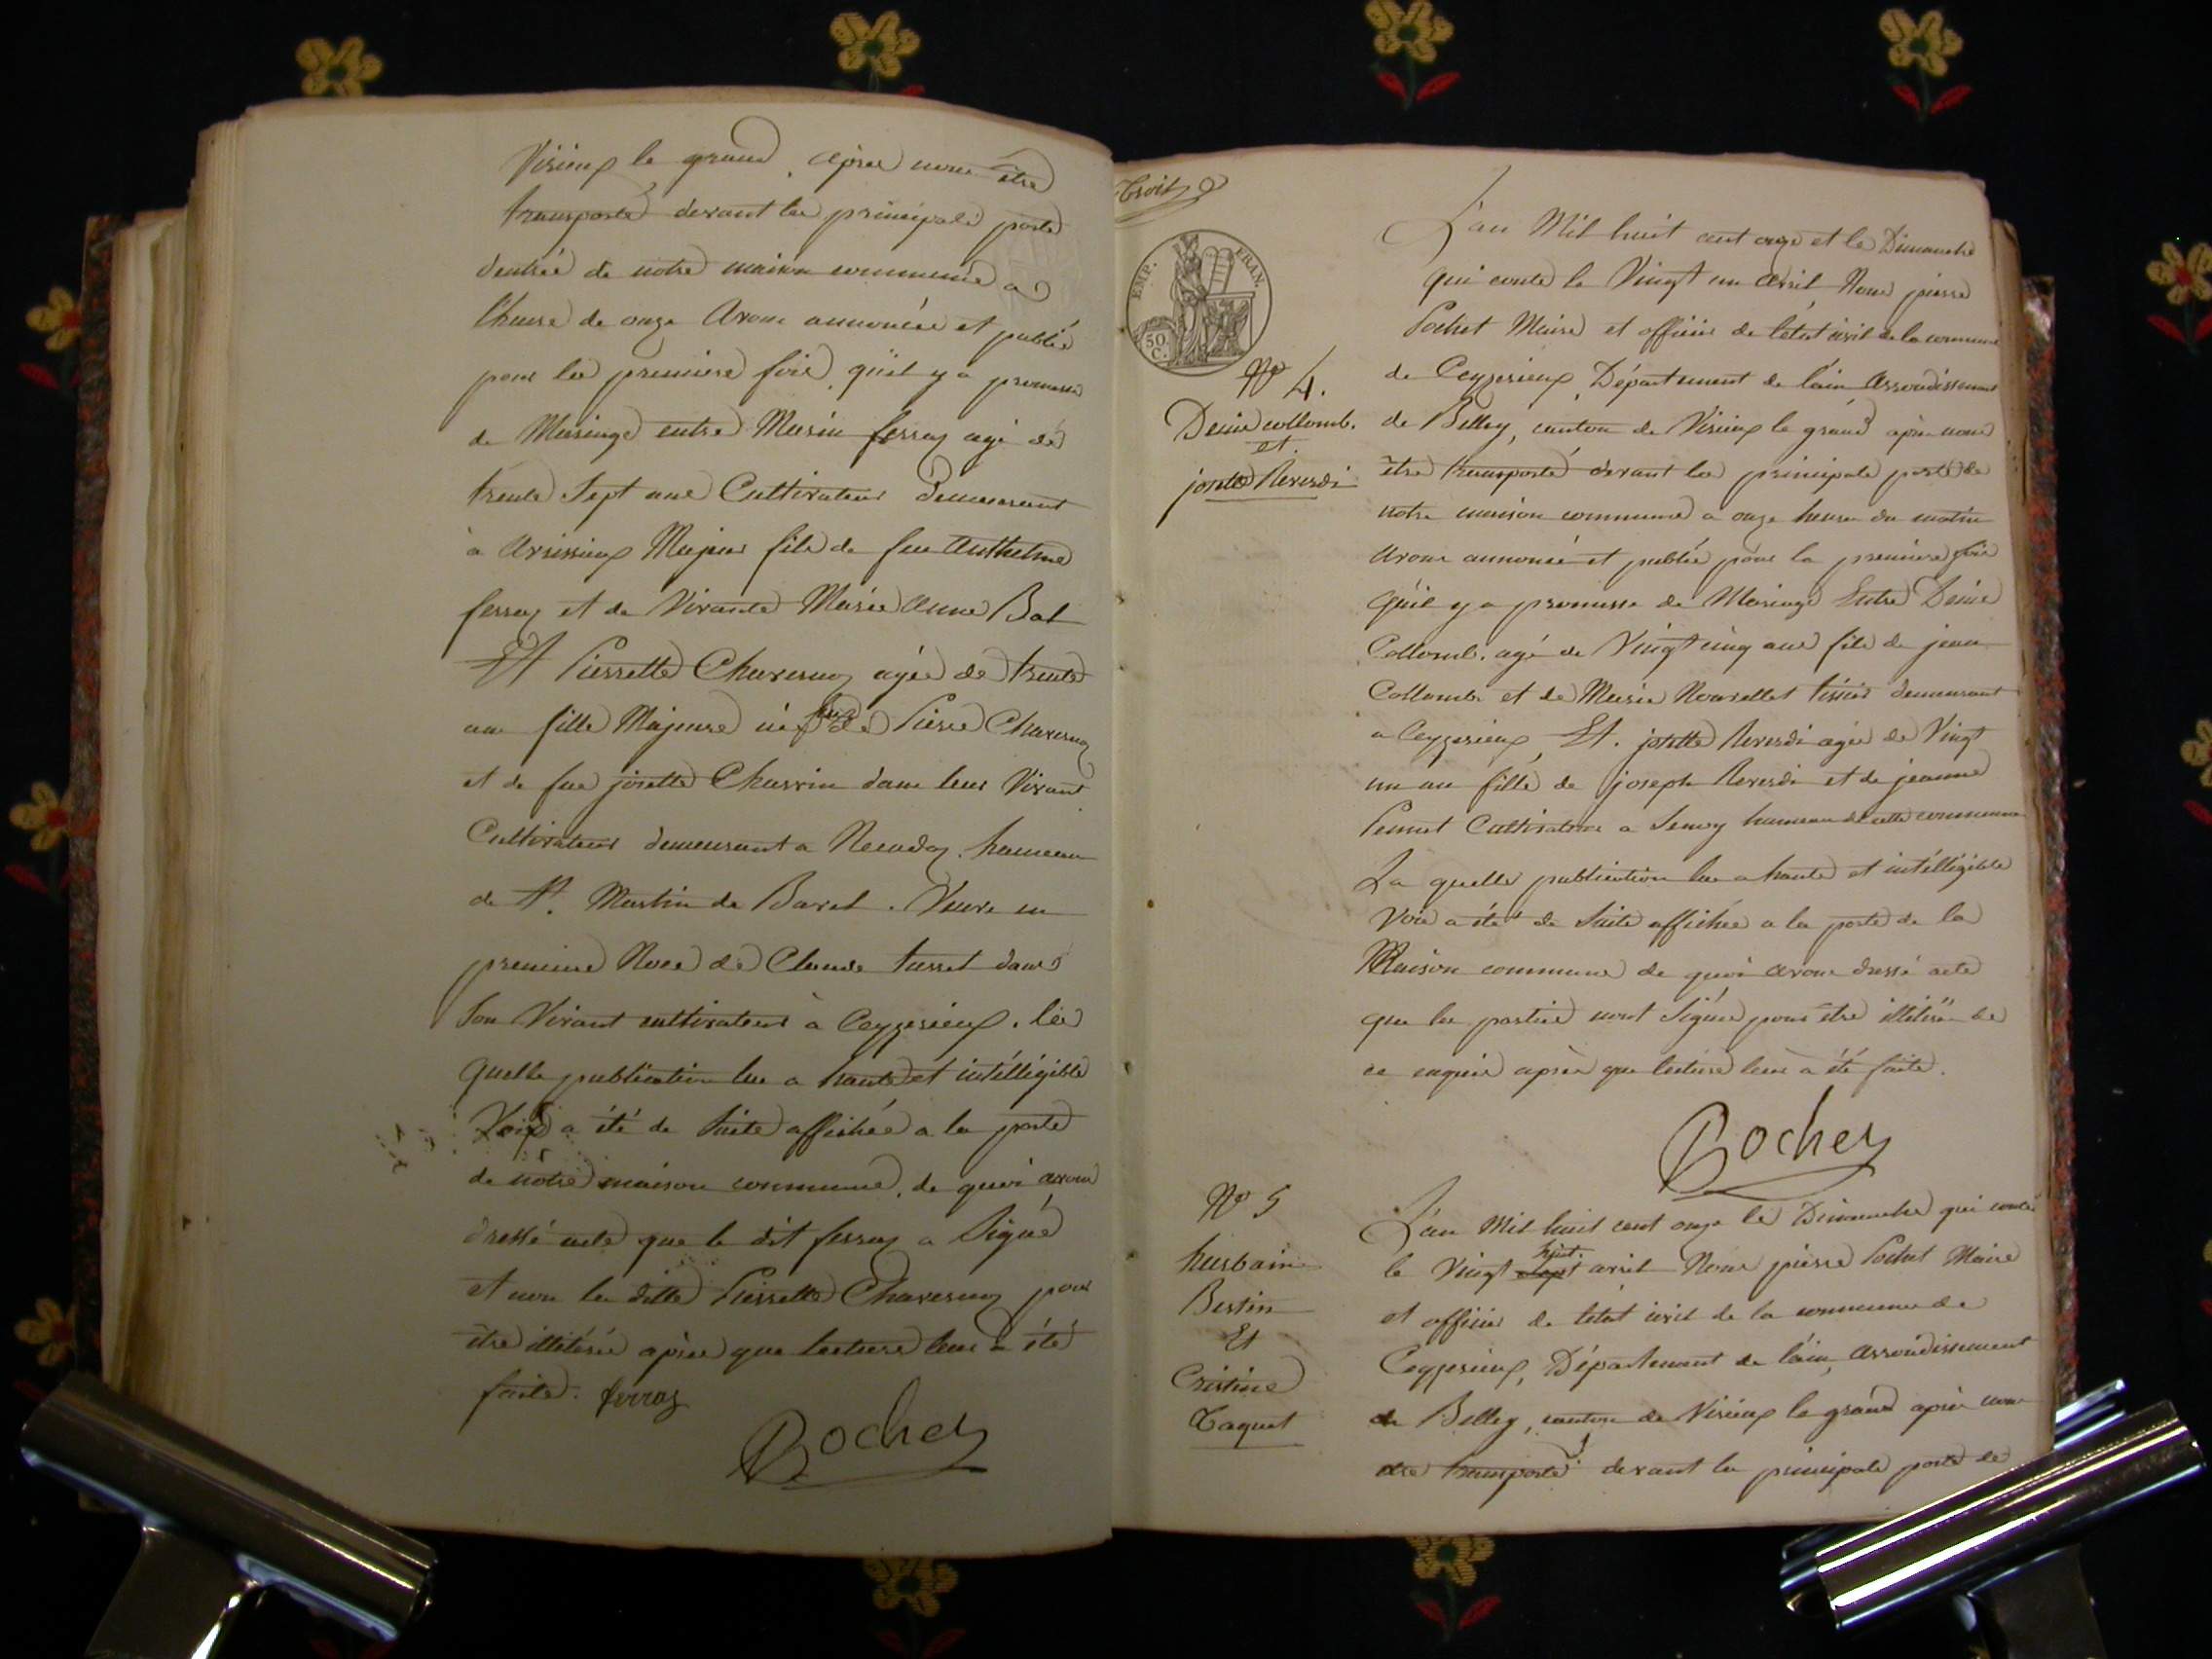 Virieux le grand, après nous être
transporté devant la principale porte
dentrée de notre maison commune a
l'heure de onze Avons annoncée et publié
pour la premiere fois, qu'il y a promesse
de Mariage entre Marin ferraz agé de
trente Sept ans Cultivateur Demeurant
à Arvissieux Majeur fils de feu Anthelme
ferraz et de Vivante Marie Anne Bal
Et Pierrette Charvernoz agée de trente
ans fille Majeure de feu Pierre Charvernoz
et de feue josette Charrin dans leur Vivant
Cultivateurs demeurant a hameau
de St. Martin de Bavel. Veuve en
premiere Noce de Claude turret dans
Son Vivant cultivateur à Ceyzerieux. la
quelle publication lue a haute et intélligible
Voix a été de Suite affichée a la porte
de nôtre maison commune, de quoi avons
dressé acte que le dit ferraz a Signé
et non la ditte Pierrette Charvernoz pour
être illitérée après que lecture leur a été
faite. ferraz
Pochet
Trois
EMP. FRAN.
50 C.
No 4.
Denis collomb.
et.
josette Reverdi
L'an Mil huit cent onze et le Dimanche
qui conte le Vingt un avril Nous pierre
Pochet Maire et officier de l'état civil de la commune
de Ceyzerieux, Département de l'ain, Arrondissement
de Belley, canton de Virieux le grand après nous
être transporté devant la principale porte de
notre maison commune a onze heure du matin
avons annoncé et publié pour la premiere fois
qu'il y a promesse de Mariage Entre Denis
Collomb. agé de Vingt cinq ans fils de jean
Collomb. et de Marie Nourellet tissier demeurant
a Ceyzerieux, Et. josette Reverdi agée de Vingt
un an fille de joseph Reverdi et de jeanne
Pernet Cultivatrice a hameau de cette commune
La quelle publication lue a haute et intélligible
Voix a été de Suite affichée a la porte de la
Maison commune de quoi avons dressé acte
que les parties nont Signée pour être illitérée de
ce enquis après que lecture leur a été faite.
Pochet
No 5
hurbain
Bertin
Et
Cristine
Taquet
L'an Mil huit cent onze le Dimanche qui conte
le Vingt huit avril Nous pierre Pochet Maire
et officier de létat civil de la commune de
Ceyzerieux, Département de l'ain, Arrondissement
de Belley, canton de Virieux le grand après nous
être transporté devant la principale porte de